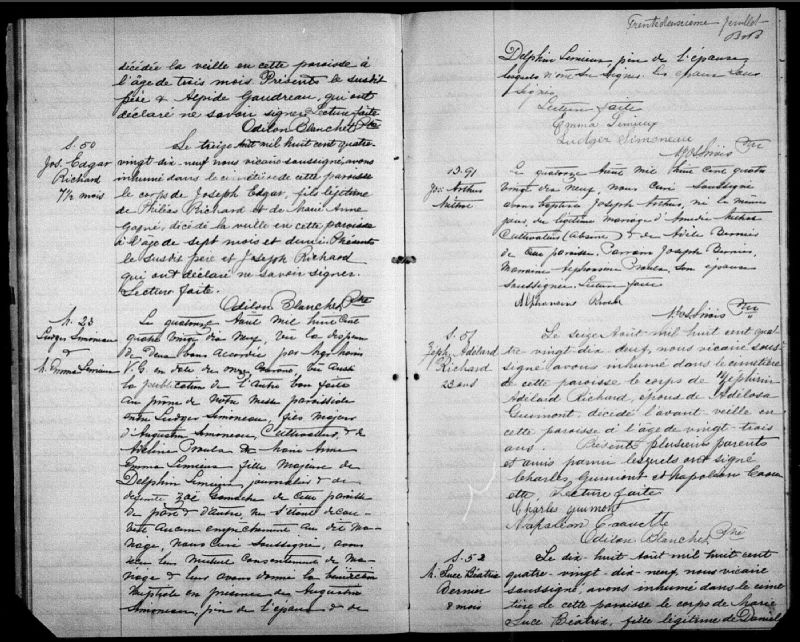 décédée la veille en cette paroisse à
l'âge de trois mois Présents le susdit
père & Alpide Gaudreau, qui ont
déclaré ne savoir signer. Lecture faite
Odilon Blanchet Ptre
S. 50
Jos. Edgar
Richard
7½ mois
Le treize Août mil huit cent quatre-
vingt dix neuf, nous vicaire soussigné, avons
inhumé dans le cimetière de cette paroisse
le corps de Joseph Edgar, fils légitime
de Philias Richard et de Marie Anne
Gagné, décédé la veille en cette paroisse
à l'âge de sept mois et demi. Présents
le susdit père et Joseph Richard
qui ont déclaré ne savoir signer.
Lecture faite.
Odilon Blanchet, Ptre
M. 23
Ludger Simoneau
&
M. Emma Lemieux
Le quatorze Août mil huit cent
quatre vingt dix neuf, vu la dispense
de deux bans accordée par Mgr
V.G. en date de onze courant, vu aussi
la publication de l'autre ban faite
au prône de notre messe paroissiale
entre Ludger Simoneau, fils majeur
d'Augustin Simoneau, Cultivateur, & de
& Marie Anne
Emma Lemieux fille majeure de
Delphin Lemieux journalier & de
défunte Zoé de cette paroisse
de part & d'autre, ne s'étant décou-
vert aucun empêchement au dit ma-
riage, nous curé soussigné, avons
reçu leur mutuel consentement de ma-
riage & leur avons donné la bénédiction
nuptiale en présence de Augustin
Simoneau, père de l'époux & de
Trente deuxième feuillet
Delphin Lemieux père de l'épouse
lesquels n'ont su signer. Les époux ont
signé.
Lecture faite
Emma Lemieux
Ludger Simoneau
Ptre
B. 91
Jos. Arthur
Le quatorze Août mil huit cent quatre
vingt dix neuf, nous curé soussigné
avons baptisé Joseph Arthur, né le même
jour, du légitime mariage d'Amédée
Cultivateur (absent) & de Bernier
de cette paroisse. Parrain Joseph Bernier,
Marraine son épouse
soussignée. Lecture faite
Ptre
S. 51
Zéph. Adélard
Richard
23 ans
Le seize Août mil huit cent qua-
tre vingt-dix-neuf, nous vicaire sous-
signé avons inhumé dans le cimetière
de cette paroisse le corps de Zéphirin
Adélard Richard, époux de
Guimont, décédé l'avant-veille en
cette paroisse à l'âge de vingt-trois
ans. Présents plusieurs parents
et amis parmi lesquels ont signé
Charles Guimont et Napoléon Caou-
ette. Lecture faite
Charles Guimont
Napoléon Caouette
Odilon Blanchet, Ptre
S. 52
M. Luce Béatrix
Bernier
8 mois
Le dix huit Août mil huit cent
quatre-vingt-dix-neuf, nous vicaire
soussigné, avons inhumé dans le cime-
tière de cette paroisse le corps de Marie
Luce Béatrix, fille légitime de Daniel